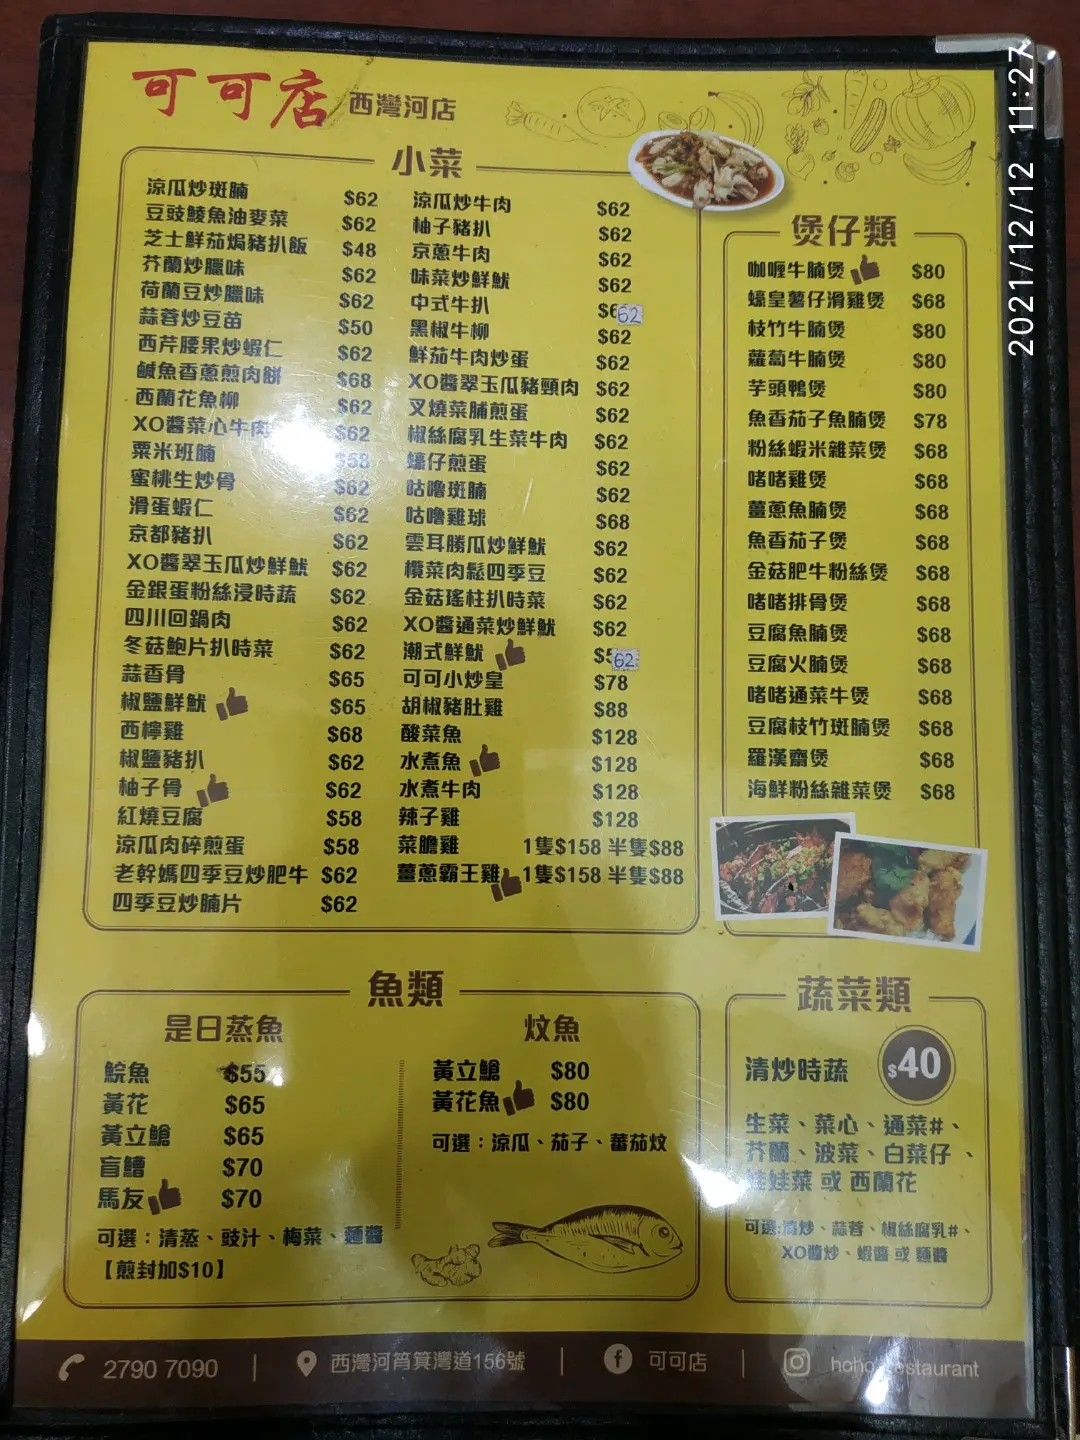 可可店 西灣河店
小菜
涼瓜炒斑腩 $62
豆豉鯪魚油麥菜 $62
芝士鮮茄焗豬扒飯 $48
芥蘭炒臘味 $62
荷蘭豆炒臘味 $62
蒜蓉炒豆苗 $50
西芹腰果炒蝦仁 $62
鹹魚香蔥煎肉餅 $68
西蘭花魚柳 $62
XO醬菜心牛肉 $62
粟米班腩 $58
蜜桃生炒骨 $62
滑蛋蝦仁 $62
京都豬扒 $62
XO醬翠玉瓜炒鮮魷 $62
金銀蛋粉絲浸時蔬 $62
四川回鍋肉 $62
冬菇鮑片扒時菜 $62
蒜香骨 $65
椒鹽鮮魷 $65
西檸雞 $68
椒鹽豬扒 $62
柚子骨 $62
紅燒豆腐 $58
涼瓜肉碎煎蛋 $58
老幹媽四季豆炒肥牛 $62
四季豆炒腩片 $62
涼瓜炒牛肉 $62
柚子豬扒 $62
京蔥牛肉 $62
味菜炒鮮魷 $62
中式牛扒 $62
黑椒牛柳 $62
鮮茄牛肉炒蛋 $62
XO醬翠玉瓜豬頸肉 $62
叉燒菜脯煎蛋 $62
椒絲腐乳生菜牛肉 $62
蠔仔煎蛋 $62
咕嚕斑腩 $62
咕嚕雞球 $68
雲耳勝瓜炒鮮魷 $62
欖菜肉鬆四季豆 $62
金菇瑤柱扒時菜 $62
XO醬通菜炒鮮魷 $62
潮式鮮魷 $62
可可小炒皇 $78
胡椒豬肚雞 $88
酸菜魚 $128
水煮魚 $128
水煮牛肉 $128
辣子雞 $128
菜膽雞 1隻$158 半隻$88
薑蔥霸王雞 1隻$158 半隻$88
煲仔類
咖喱牛腩煲 $80
蠔皇薯仔滑雞煲 $68
枝竹牛腩煲 $80
蘿蔔牛腩煲 $80
芋頭鴨煲 $80
魚香茄子魚腩煲 $78
粉絲蝦米雜菜煲 $68
啫啫雞煲 $68
薑蔥魚腩煲 $68
魚香茄子煲 $68
金菇肥牛粉絲煲 $68
啫啫排骨煲 $68
豆腐魚腩煲 $68
豆腐火腩煲 $68
啫啫通菜牛煲 $68
豆腐枝竹斑腩煲 $68
羅漢齋煲 $68
海鮮粉絲雜菜煲 $68
魚類
是日蒸魚
鯇魚 $55
黃花 $65
黃立鯧 $65
盲鰽 $70
馬友 $70
可選：清蒸、豉汁、梅菜、麵醬
【煎封加$10】
炆魚
黃立鯧 $80
黃花魚 $80
可選：涼瓜、茄子、蕃茄炆
蔬菜類
清炒時蔬 $40
生菜、菜心、通菜#、
芥蘭、波菜、白菜仔、
娃娃菜 或 西蘭花
可選:清炒、蒜蓉、椒絲腐乳#、
XO醬炒、蝦醬 或 麵醬
2790 7090 | 西灣河筲箕灣道156號 | 可可店 | restaurant
2021/12/12 11:27